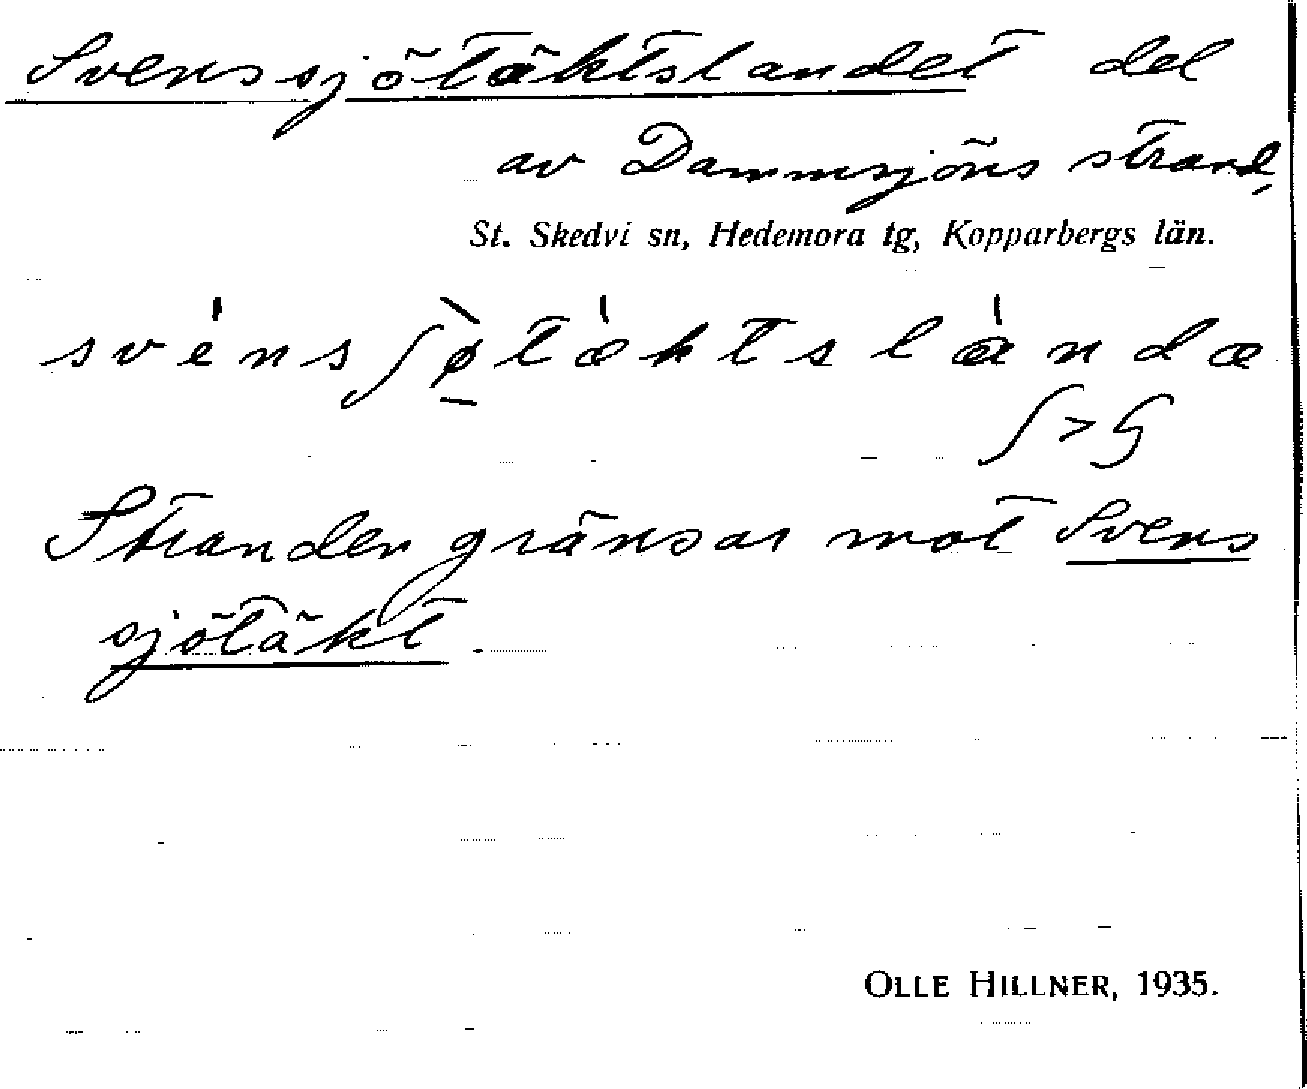 Svenssjötäktslandet del
av Dammsjöns strand,
St. Skedvi sn, Hedemora tg, Kopparbergs län.
Stranden gränsar mot Svens
sjötäkt.
OLLE HILLNER, 1935.